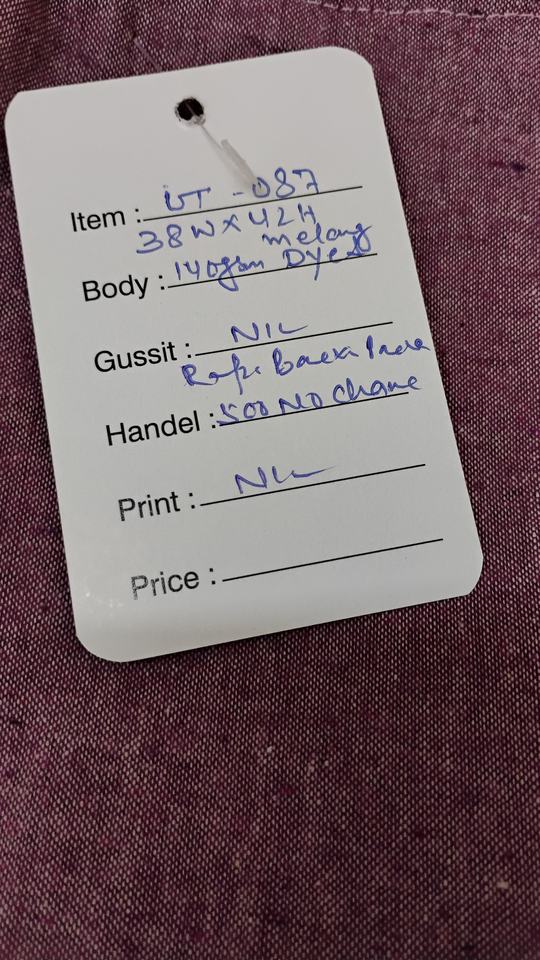 Item : UT - 087
38W X 42H
melang
Body : 140gsm Dyed
Gussit : NIL
Handel : 500 No
Print : NIL
Price :